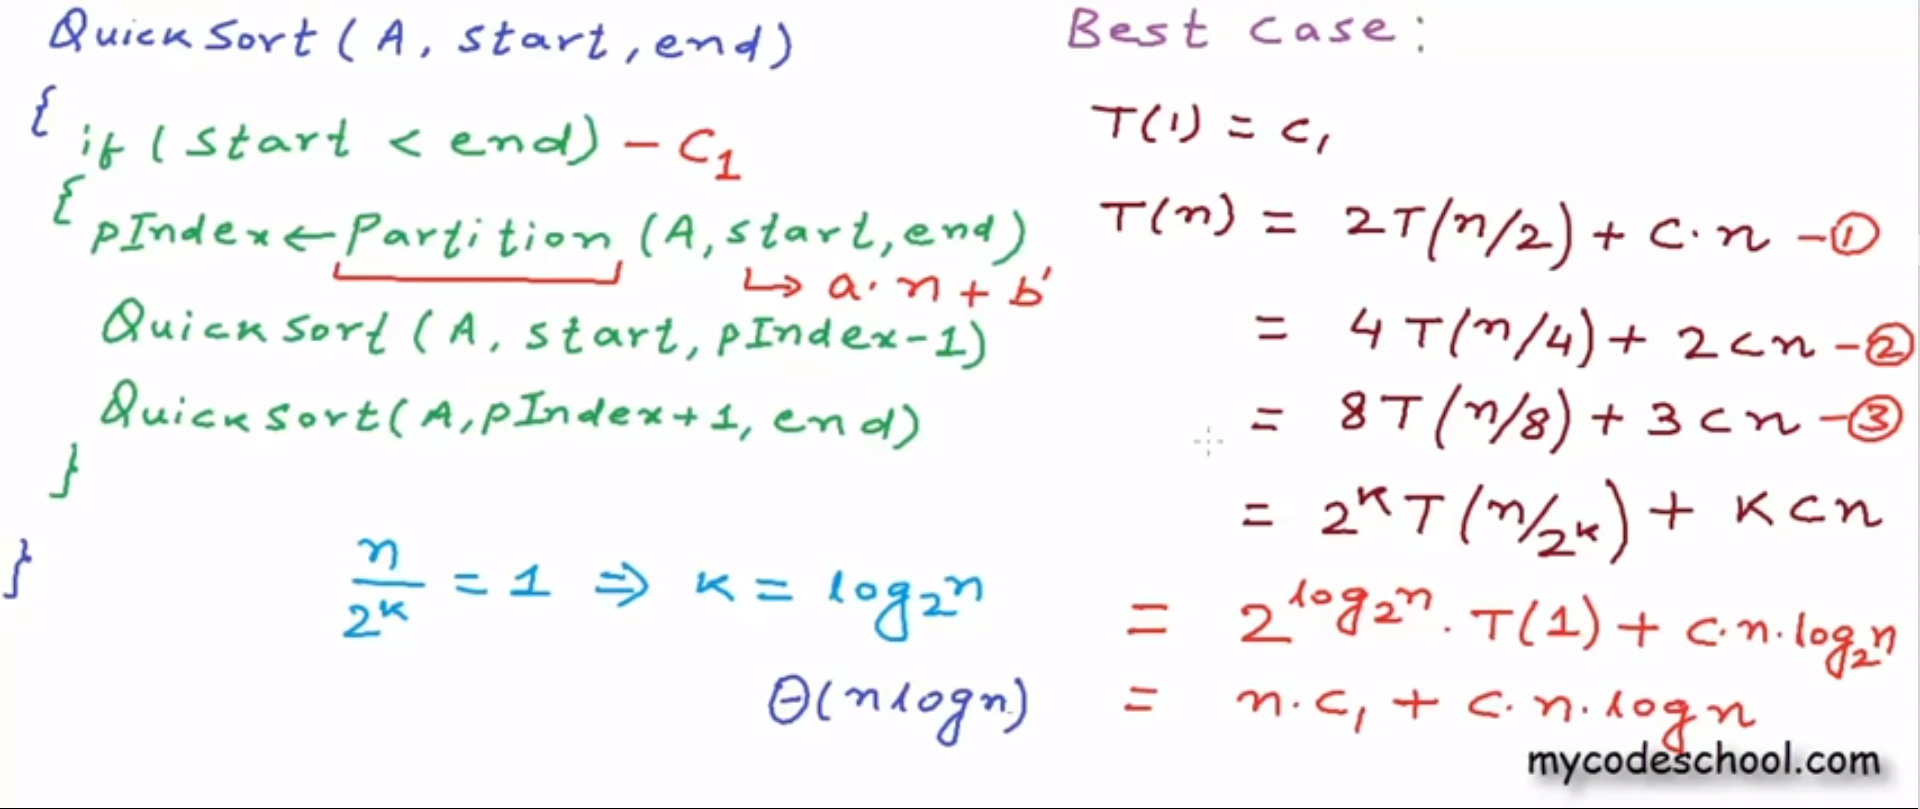 QuickSort(A, start, end)
{
if (start < end) - C₁
{
pIndex ← Partition (A, start, end)
↳ a·n + b'
QuickSort(A, start, pIndex-1)
QuickSort(A, pIndex+1, end)
}
}
n/2ᵏ = 1 ⇒ k = log₂n
Θ(nlogn)
Best case:
T(1) = c₁
T(n) = 2T(n/2) + c·n - ①
= 4T(n/4) + 2cn - ②
= 8T(n/8) + 3cn - ③
= 2ᵏT(n/2ᵏ) + kcn
= 2^(log₂n) · T(1) + c·n·log₂n
= n·c₁ + c·n·logn
mycodeschool.com